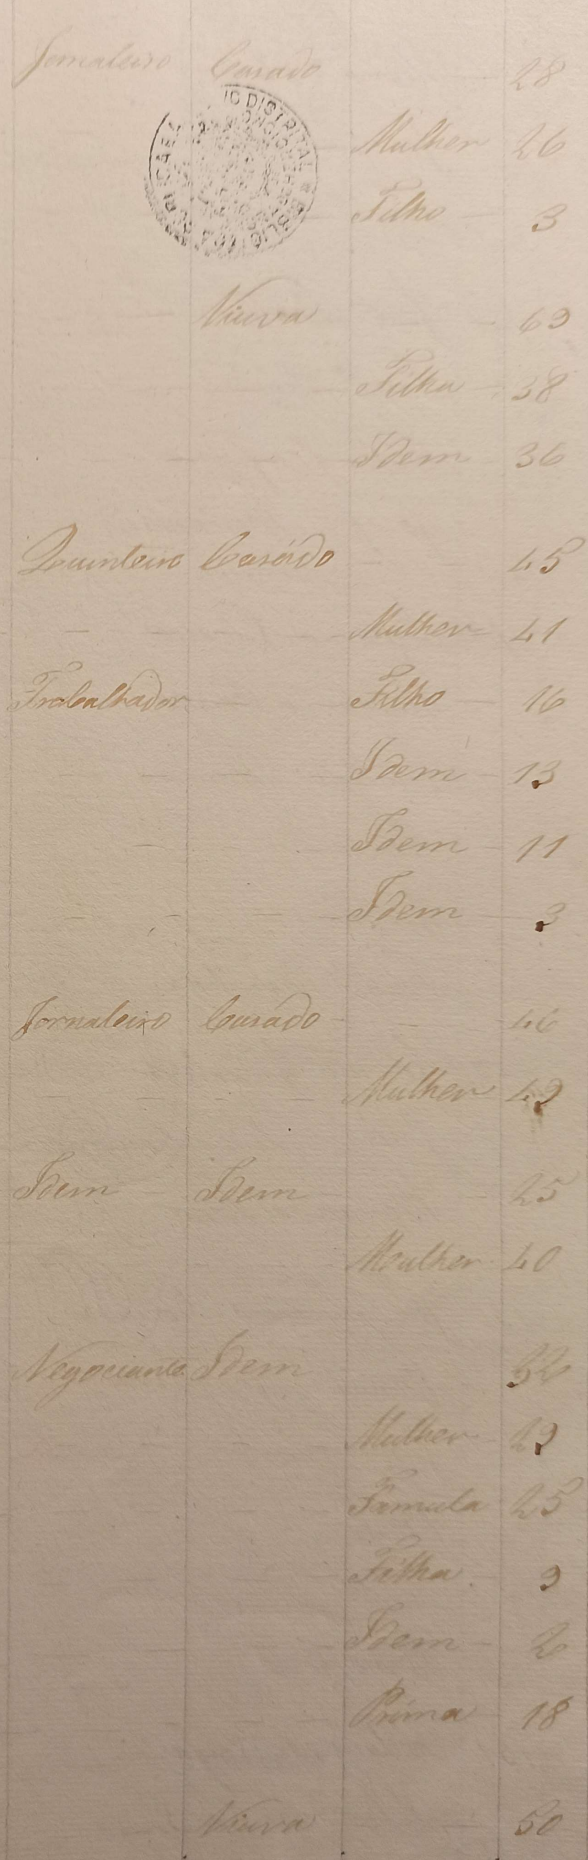 Jornaleiro Casado 28
Mulher 26
Filho 3
Viuva 69
Filha 38
Idem 36
Quinteiro Casado 45
Mulher 41
Trabalhador Filho 16
Idem 13
Idem 11
Idem 3
Jornaleiro Casado 46
Mulher 49
Idem Idem 25
Mulher 40
Negociante Idem 32
Mulher 29
Famula 25
Filha 9
Idem 2
Prima 18
Viuva 50